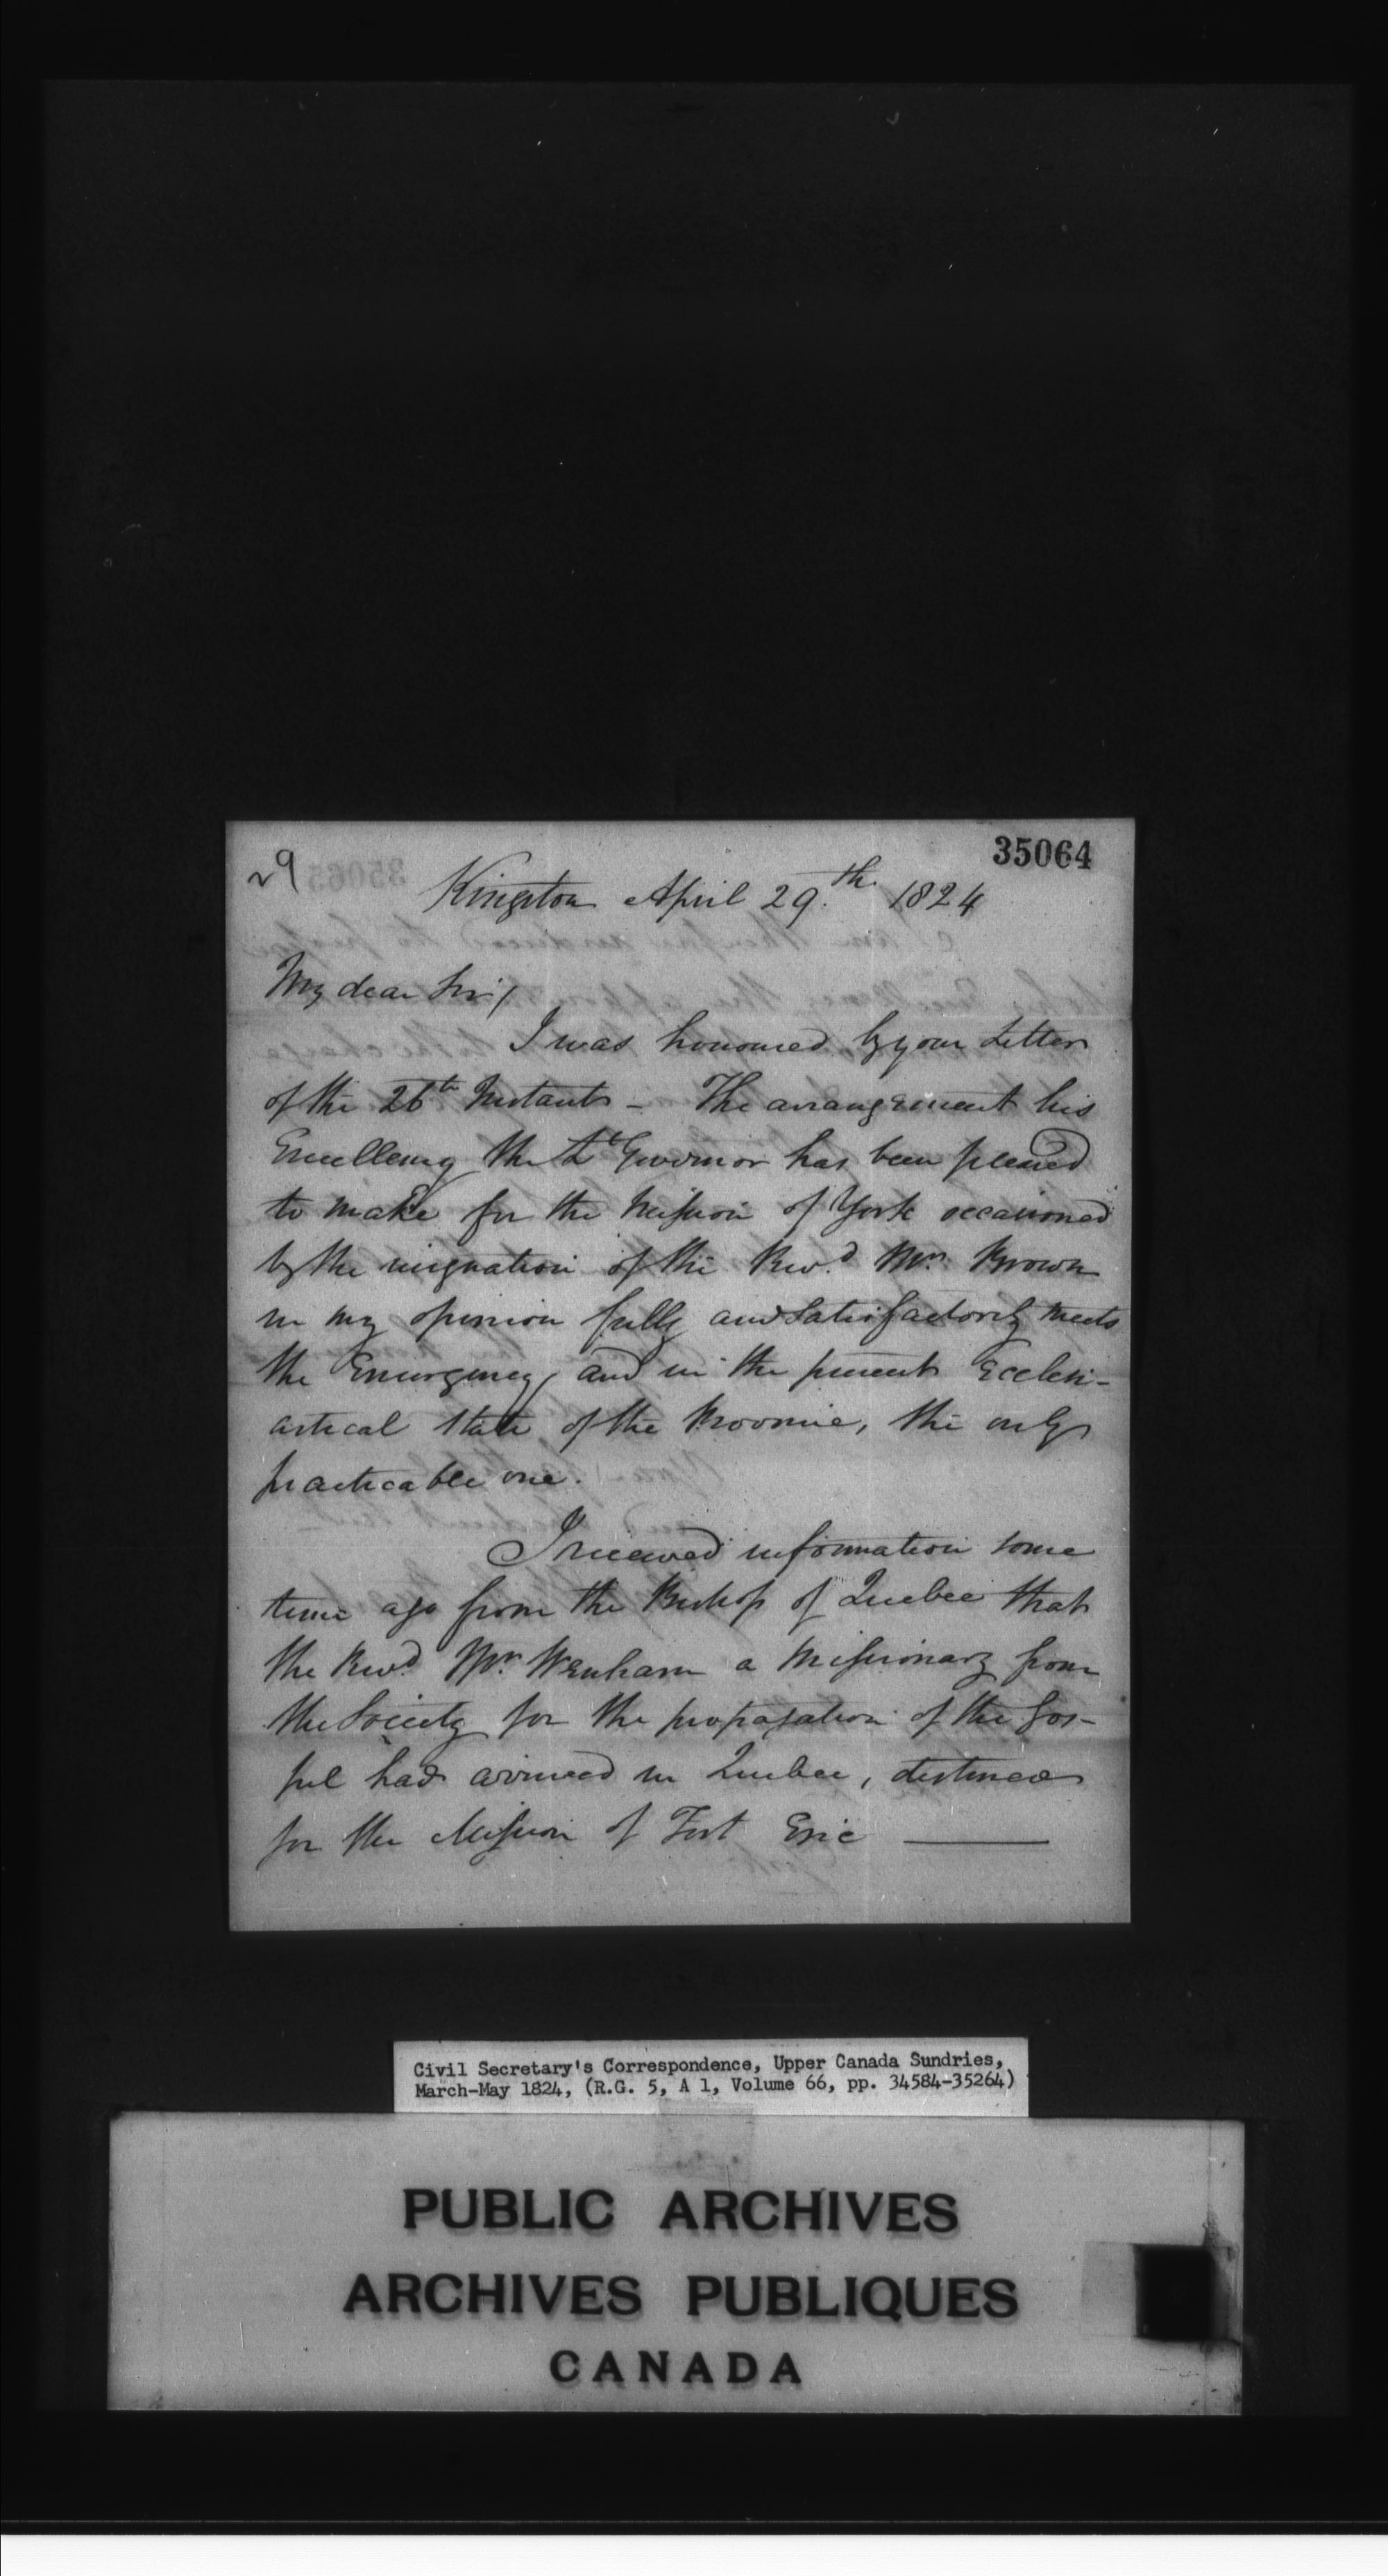 35064
29
Kingston April 29.th 1824
My dear Sir/
I was honoured by your Letter
of the 26th Instant - The arrangement his
Excellency the Lt Governor has been pleased
to make for the Mission of York occasioned
by the resignation of the Revd. Mr. Brown
in my opinion fully and Satisfactorily meets
the Emergency, and in the present Ecclesi-
astical State of the Province, the only
practicable one.
I received information some
time ago from the Bishop of Quebec that
the Revd. Mr. Wenham a Missionary from
the Society for the propagation of the Gos-
pel had arrived in Quebec, destined
for the Mission of Fort Erie
Civil Secretary's Correspondence, Upper Canada Sundries,
March-May 1824, (R.G. 5, A 1, Volume 66, pp. 34584-35264)
PUBLIC ARCHIVES
ARCHIVES PUBLIQUES
CANADA